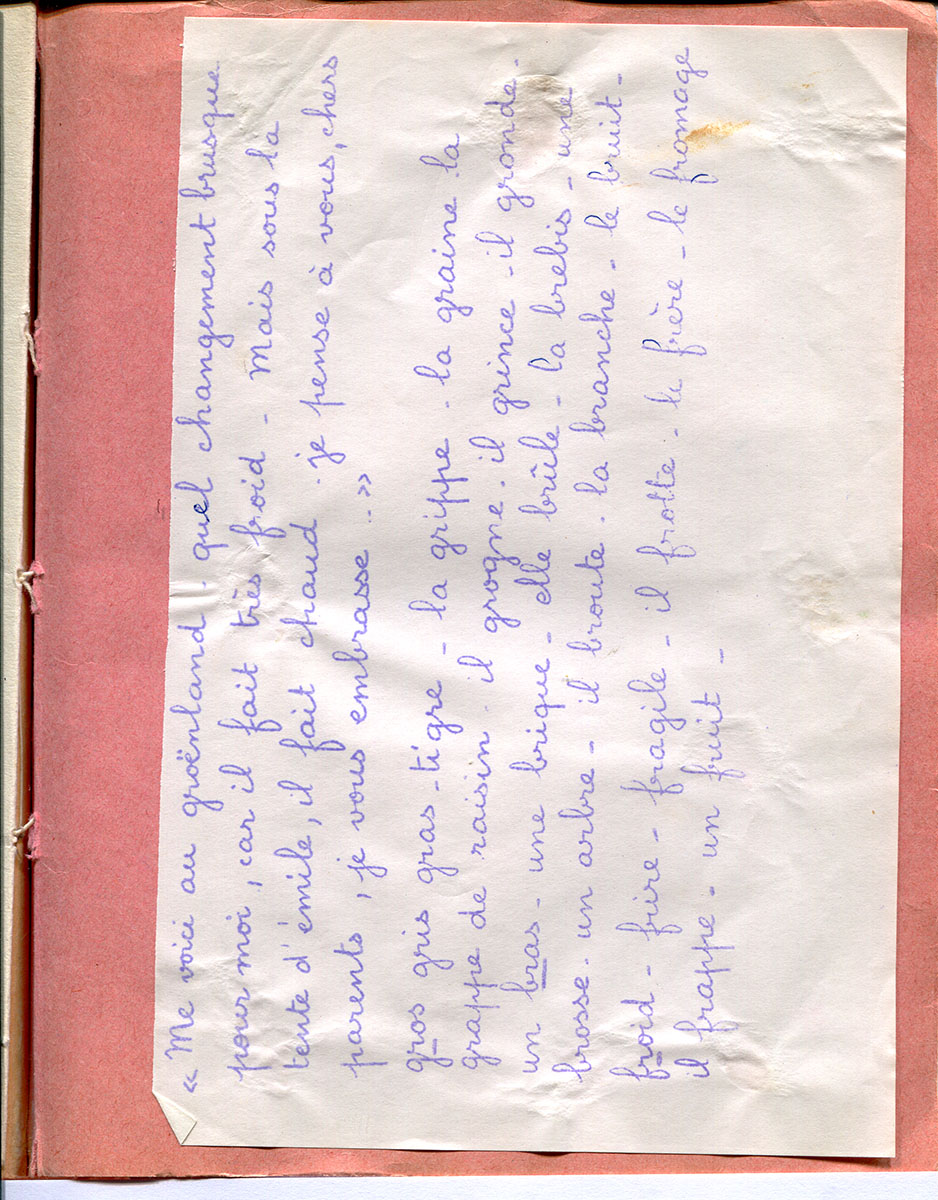 « Me voici au groënland. quel changement brusque
pour moi, car il fait très froid - Mais sous la
tente d'émile, il fait chaud. je pense à vous, chers
parents, je vous embrasse .. »
gros gris gras - tigre - la grippe. la graine la
grappe de raisin. il grogne. il grince - il gronde -
un bras - une brique - elle brûle - la brebis - une
brosse. un arbre - il broute. la branche - le bruit -
froid - frire - fragile - il frotte. le frère - le fromage
il frappe - un fruit -